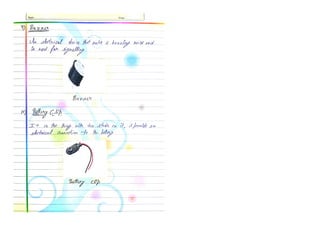 Buzzer
An electrical device that makes a buzzing noise and
is used for signalling.
Buzzer
Battery Clip
It is the thing with two wires in it, it provide an
electrical connection to the battery.
Battery clip